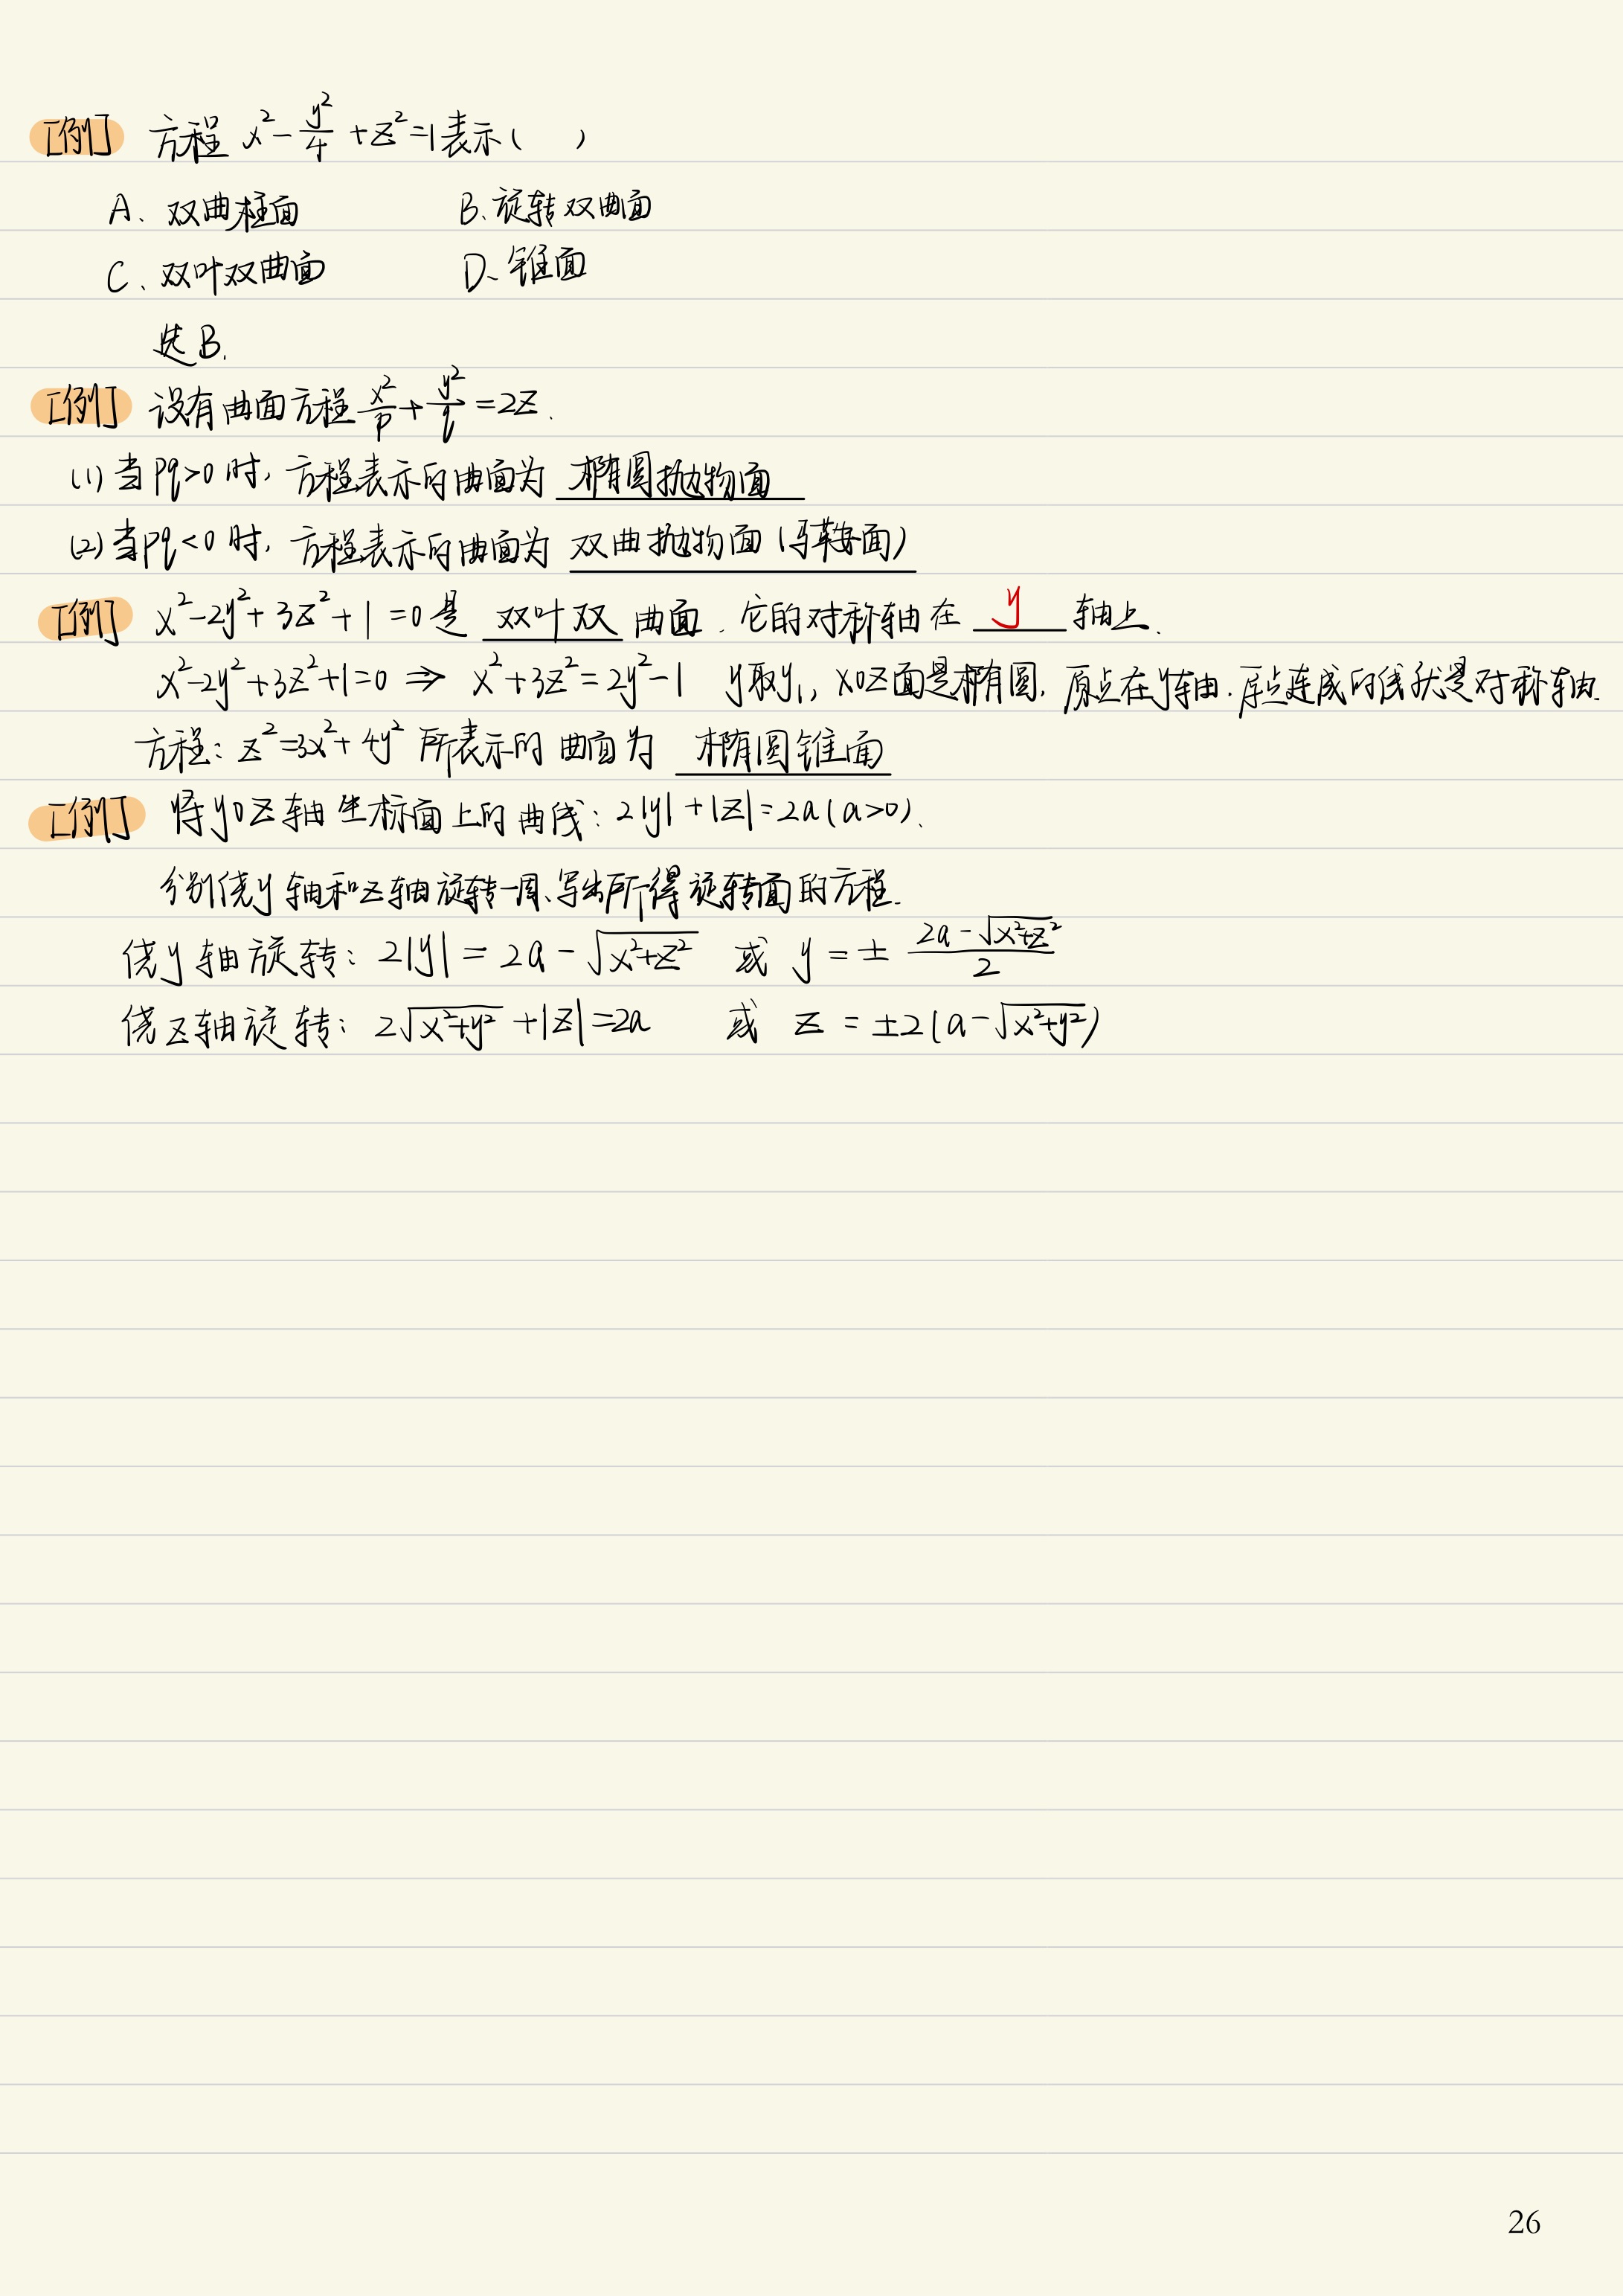 [例] 方程 x²-y²/4+z²=1表示( )
A、双曲柱面 B、旋转双曲面
C、双叶双曲面 D、锥面
选B.
[例] 设有曲面方程x²/p+y²/q=2z.
(1)当pq>0时,方程表示的曲面为 椭圆抛物面
(2)当pq<0时,方程表示的曲面为 双曲抛物面(马鞍面)
[例] x²-2y²+3z²+1=0是 双叶双 曲面.它的对称轴在 y 轴上.
x²-2y²+3z²+1=0 ⇒ x²+3z²=2y²-1 y取y₁,xoz面是椭圆,原点在y轴.原点连成的线就是对称轴.
方程:z²=3x²+4y²所表示的曲面为 椭圆锥面
[例] 将yoz轴坐标面上的曲线:2|y|+|z|=2a(a>0).
分别绕y轴和z轴旋转一周、写出所得旋转面的方程.
绕y轴旋转:2|y|=2a-√(x²+z²) 或 y=±(2a-√(x²+z²))/2
绕z轴旋转:2√(x²+y²)+|z|=2a 或 z=±2(a-√(x²+y²))
26